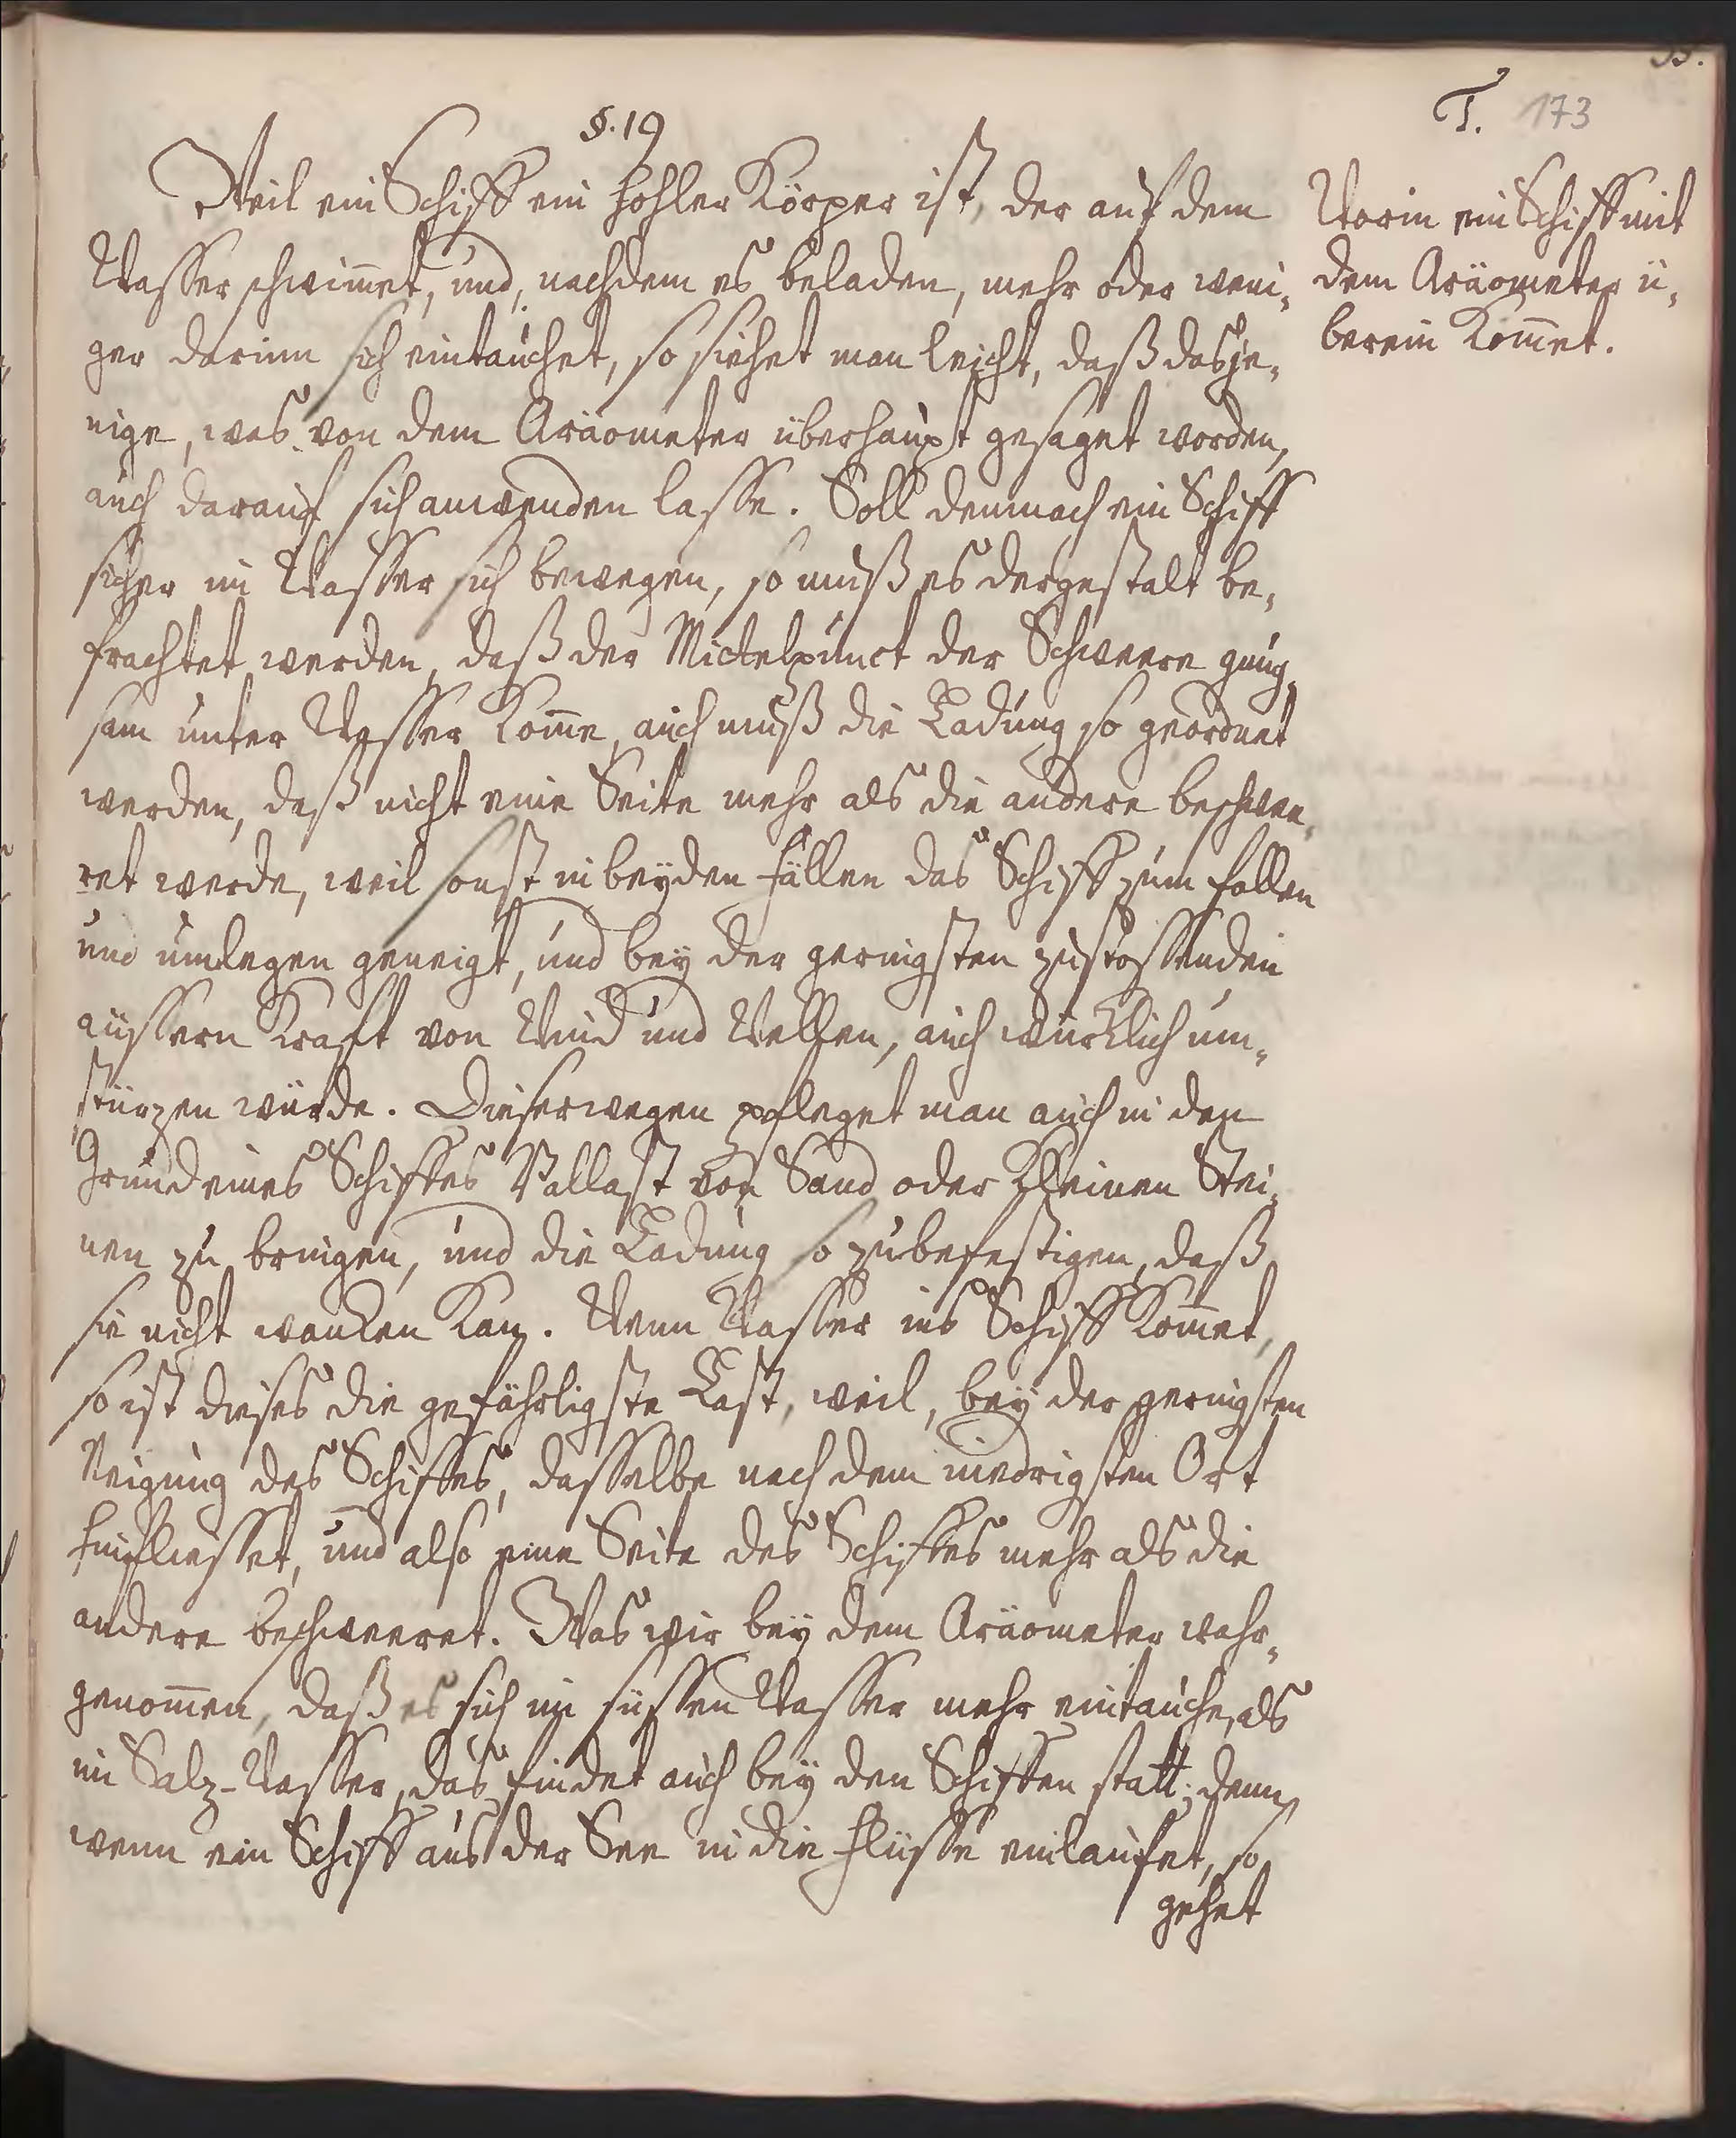 T. 173
§. 19
Weil ein Schiff ein hohler Körper ist, der auf dem
Wasser schwim̄et, und, nachdem es beladen, mehr oder weni-
ger darinn sich eintauchet, so siehet man leicht, daß dasje-
nige, was von dem Aräometer überhaupt gesaget worden,
auch darauf sich anwenden lasse. Soll demnach ein Schiff
sicher im Wasser sich bewegen, so muß es dergestalt be-
frachtet werden, daß der Mittelpunct der Schweere gnug-
sam unter Wasser kom̄e, auch muß die Ladung so geordnet
werden, daß nicht eine Seite mehr als die andere beschwee-
ret werde, weil sonst in beyden Fällen das Schiff zum fallen
und umlegen geneigt, und bey der geringsten zustossenden
äussern Kraft von Wind und Wellen, auch würklich um-
stürzen würde. Dieserwegen pfleget man auch in den
Grund eines Schiffes Ballast von Sand oder kleinen Stei-
nen zu bringen, und die Ladung so zubefestigen, daß
sie nicht wanken kan. Wenn Wasser ins Schiff kom̄et,
so ist dieses die gefährligste Last, weil, bey der geringsten
Neigung des Schiffes, dasselbe nach dem niedrigsten Ort
hinfliesset, und also eine Seite des Schiffes mehr als die
andere beschweeret. Was wir bey dem Aräometer wahr-
genom̄en, daß es sich im süssen Wasser mehr eintauche, als
im Salz-Wasser, das findet auch bey den Schiffen statt; denn
wenn ein Schiff aus der See in die Flüsse einlaufet, so
gehet
Worin ein Schiff mit
dem Aräometer ü-
berein kom̄et.